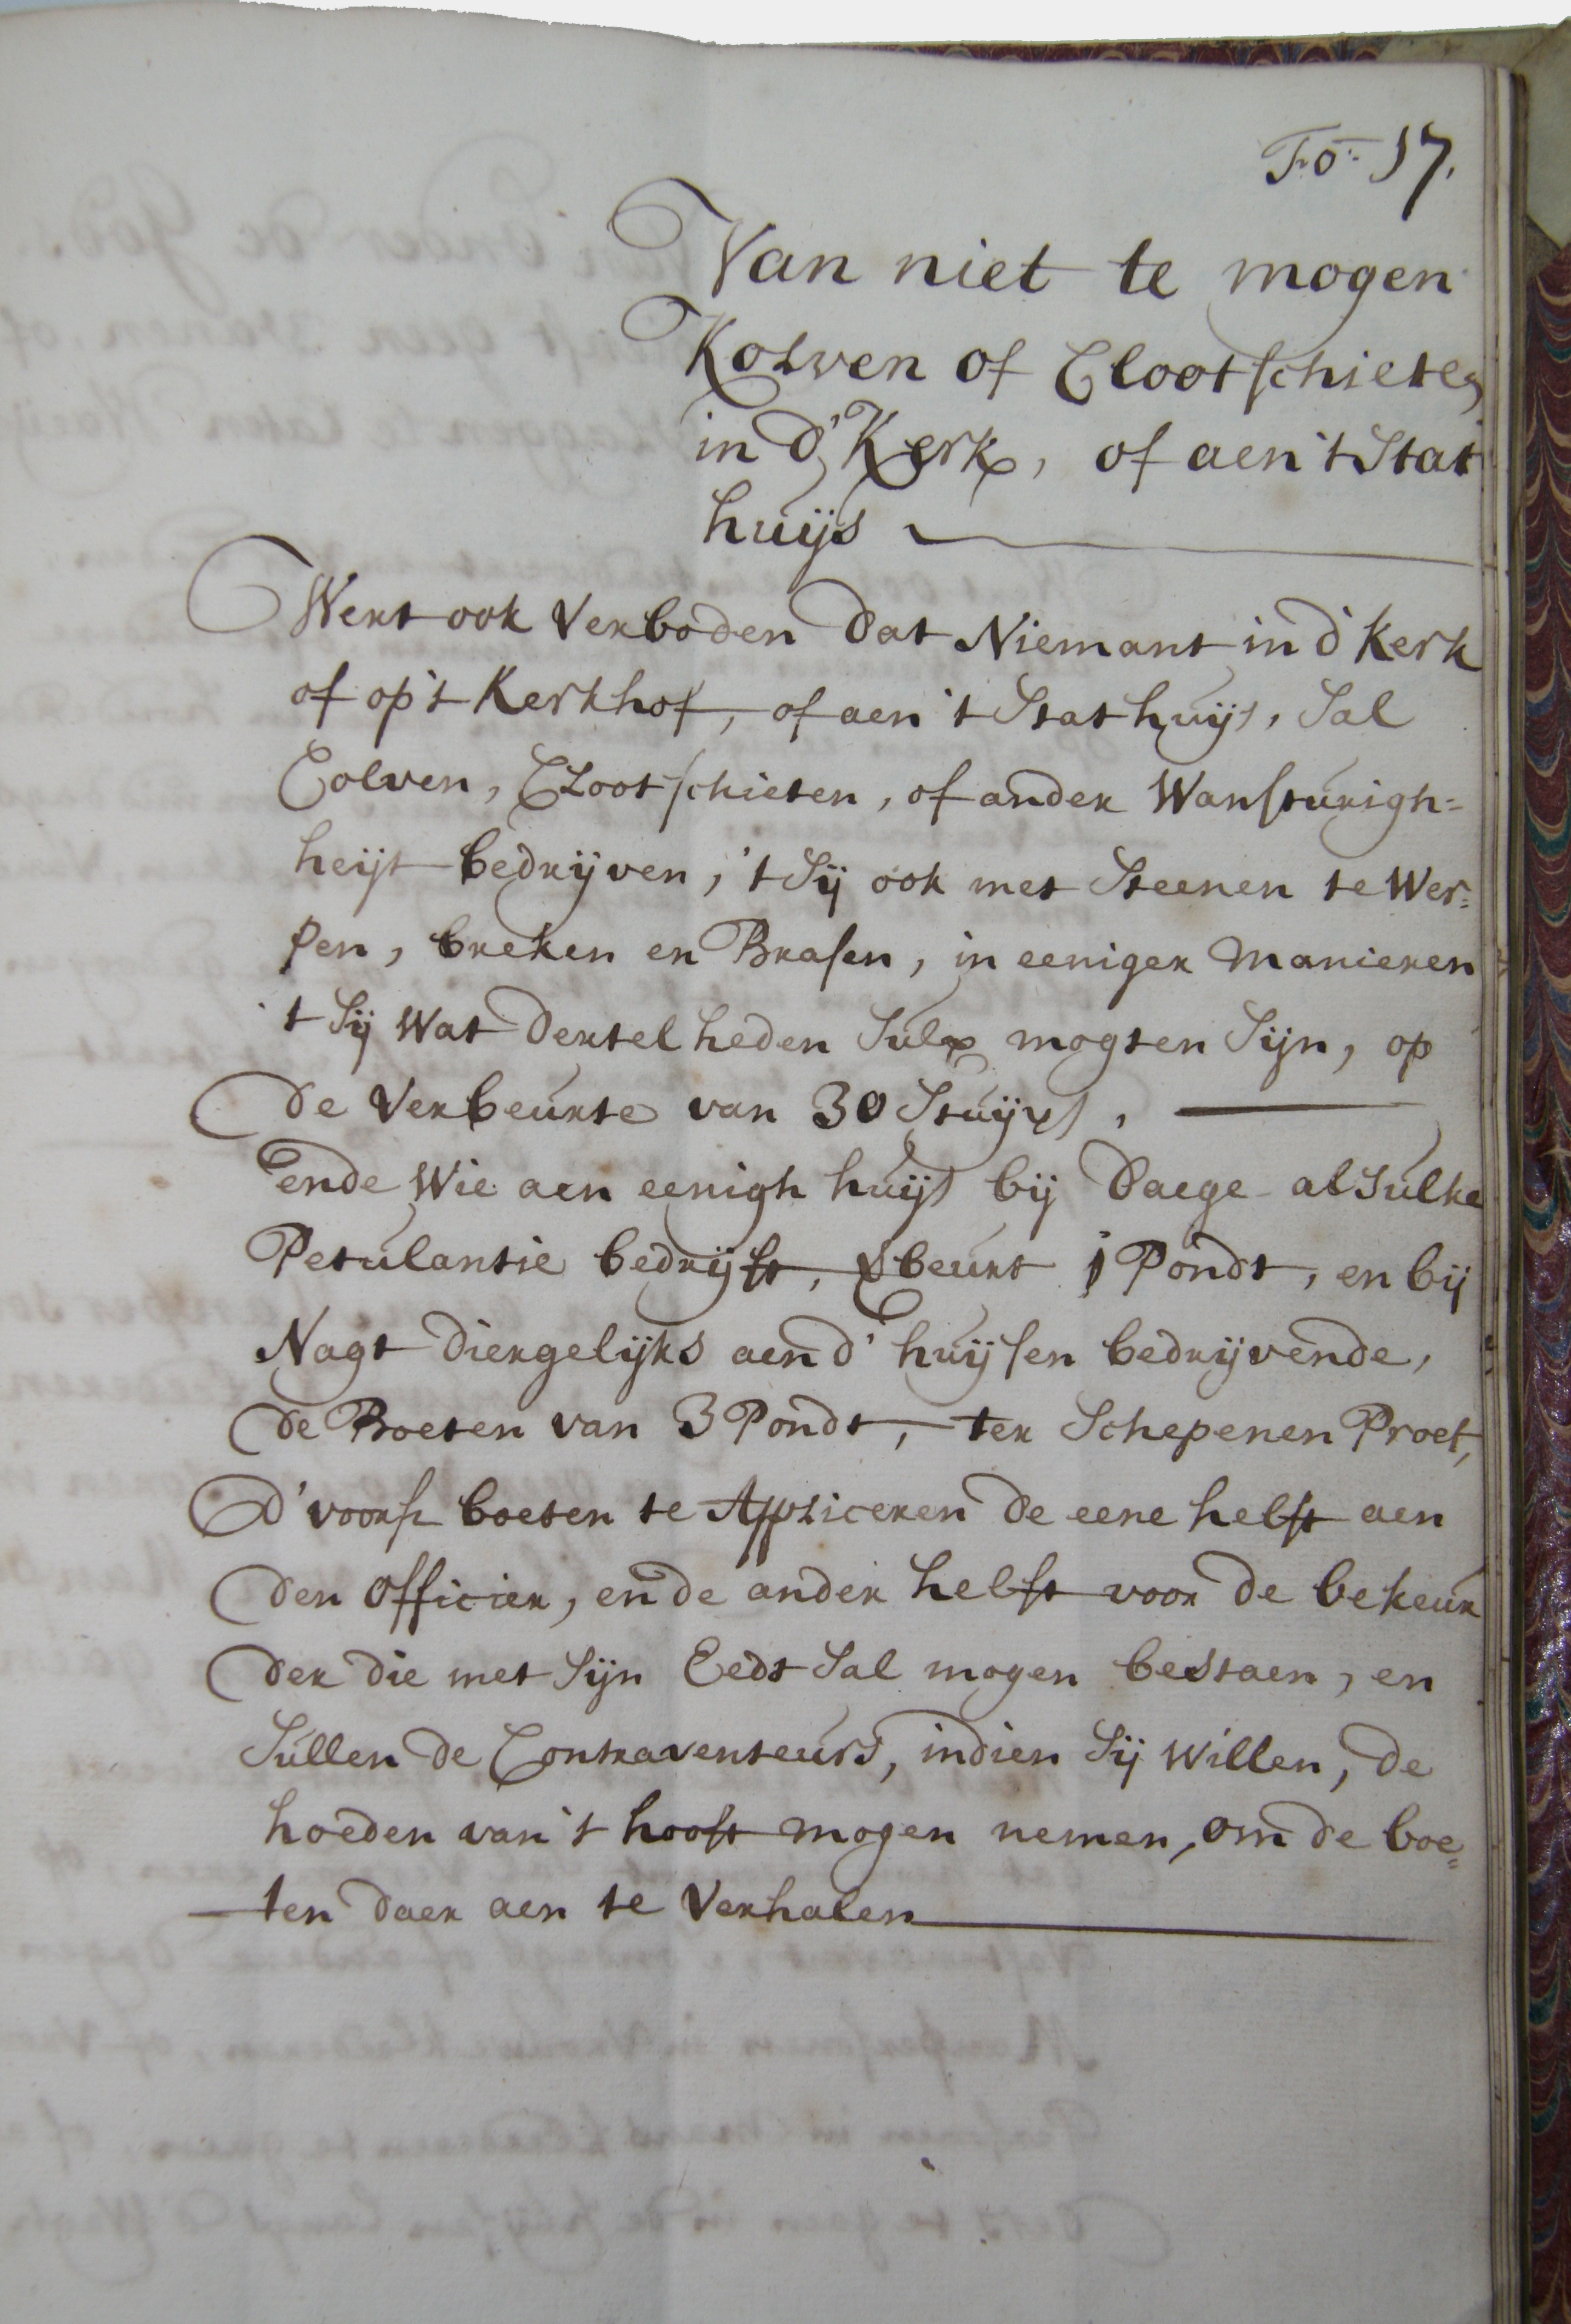 Fo: 17.
Van niet te mogen
Kolven of Clootschieten
in d' Kerk, of aen 't Stat
huijs
Wert ook verboden dat Niemant in d' Kerk
of op 't Kerkhof, of aen 't Stathuijs, Sal
Colven, Clootschieten, of ander Wansturigh=
heijt bedrijven, 't Sij ook met Steenen te Wer=
pen, breken en Brasen, in eeniger manieren
't Sij Wat dertelheden Sulx mogten Sijn, op
de Verbeurte van 30 Stuijvs,
ende Wie aen eenigh huijs bij daege alsulke
Petulantie bedrijft, Vbeurt j Pondt, en bij
Nagt diergelijks aen d' huijsen bedrijvende,
de Boeten van 3 Pondt, ter Schepenen Proet,
D' voors boeten te Appliceren de eene helft aen
den Officier, en de ander helft voor de bekeur
der die met Sijn Eedt Sal mogen bestaen, en
Sullen de Contraventeurs, indien Sij Willen, de
hoeden van 't hooft mogen nemen, om de boe=
ten daer aen te Verhalen